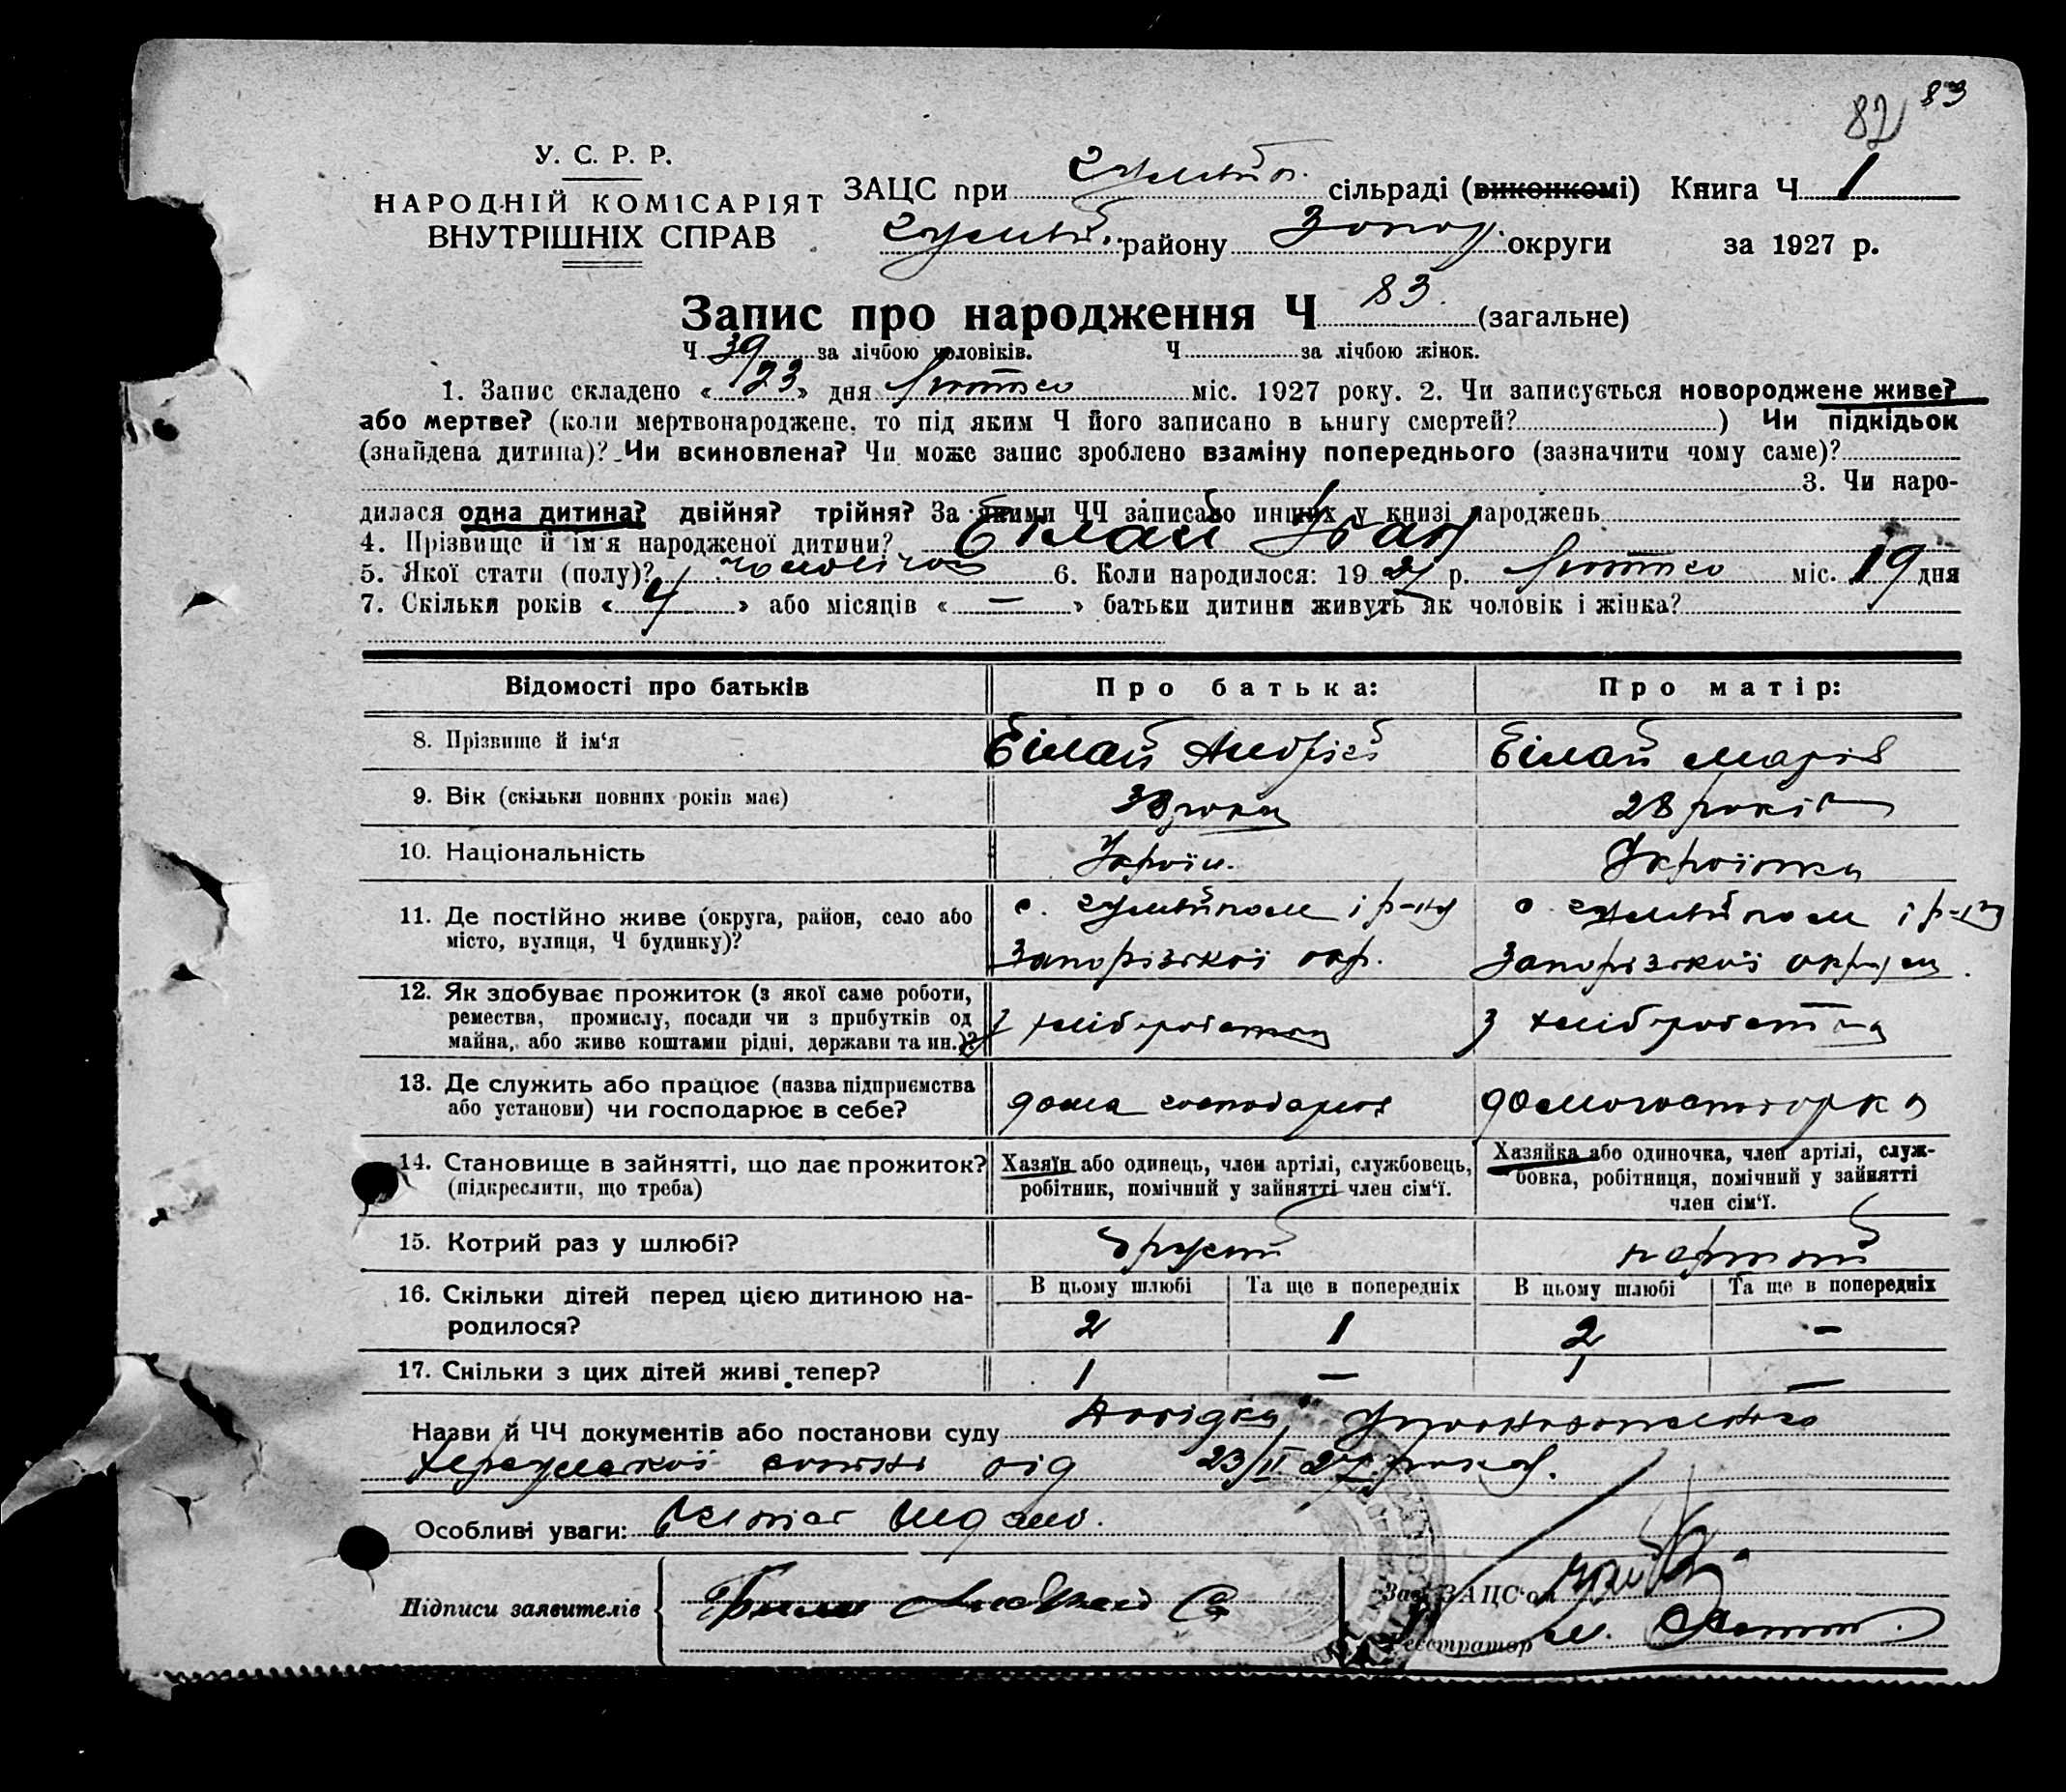 83
82
У. С. Р. Р.
НАРОДНІЙ КОМІСАРІЯТ
ВНУТРІШНІХ СПРАВ
ЗАЦС при Гуляйп. сільраді (виконкомі) Книга Ч 1
Гуляйп. району Запор. округи за 1927 р.
Запис про народження Ч 83 (загальне)
Ч 39 за лічбою чоловіків. Ч за лічбою жінок.
1. Запис складено « 23 » дня лютого міс. 1927 року. 2. Чи записується новороджене живе?
або мертве? (коли мертвонароджене, то під яким Ч його записано в книгу смертей? ) Чи підкідьок
(знайдена дитина)? Чи всиновлена? Чи може запис зроблено взаміну попереднього (зазначити чому саме)?
3. Чи наро-
дилася одна дитина? двійня? трійня? За якими ЧЧ записано инших у книзі народжень
4. Прізвище й ім'я народженої дитини? Білай Іван
5. Якої стати (полу)? чоловічої 6. Коли народилося: 19 27 р. лютого міс. 19 дня
7. Скільки років « 4 » або місяців « — » батьки дитини живуть як чоловік і жінка?
Відомості про батьків Про батька: Про матір:
8. Прізвище й ім'я Білай Андрій Білай Марія
9. Вік (скільки повних років має) 38 28 років
10. Національність Україн. Українка
11. Де постійно живе (округа, район, село або
місто, вулиця, Ч будинку)?
с. Гуляйполе і р-ну
Запорізької окр.
с. Гуляйполе і р-ну
Запорізької округи.
12. Як здобуває прожиток (з якої саме роботи,
ремества, промислу, посади чи з прибутків од
майна, або живе коштами рідні, держави та ин.)?
з хліборобства
з хліборобства
13. Де служить або працює (назва підприємства
або установи) чи господарює в себе?
дома господарює
домогосподарка
14. Становище в зайнятті, що дає прожиток?
(підкреслити, що треба)
Хазяїн або одинець, член артілі, службовець,
робітник, помічний у зайнятті член сім'ї.
Хазяйка або одиночка, член артілі, служ-
бовка, робітниця, помічний у зайнятті
член сім'ї.
15. Котрий раз у шлюбі? другий перший
16. Скільки дітей перед цією дитиною на-
родилося?
В цьому шлюбі Та ще в попередніх В цьому шлюбі Та ще в попередніх
2 1 2 —
17. Скільки з цих дітей живі тепер? 1 — 1 —
Назви й ЧЧ документів або постанови суду Довідка
від 23/II 27 року.
Особливі уваги: видано.
Підписи заявителів
Зав. ЗАЦС'ом
Реєстратор